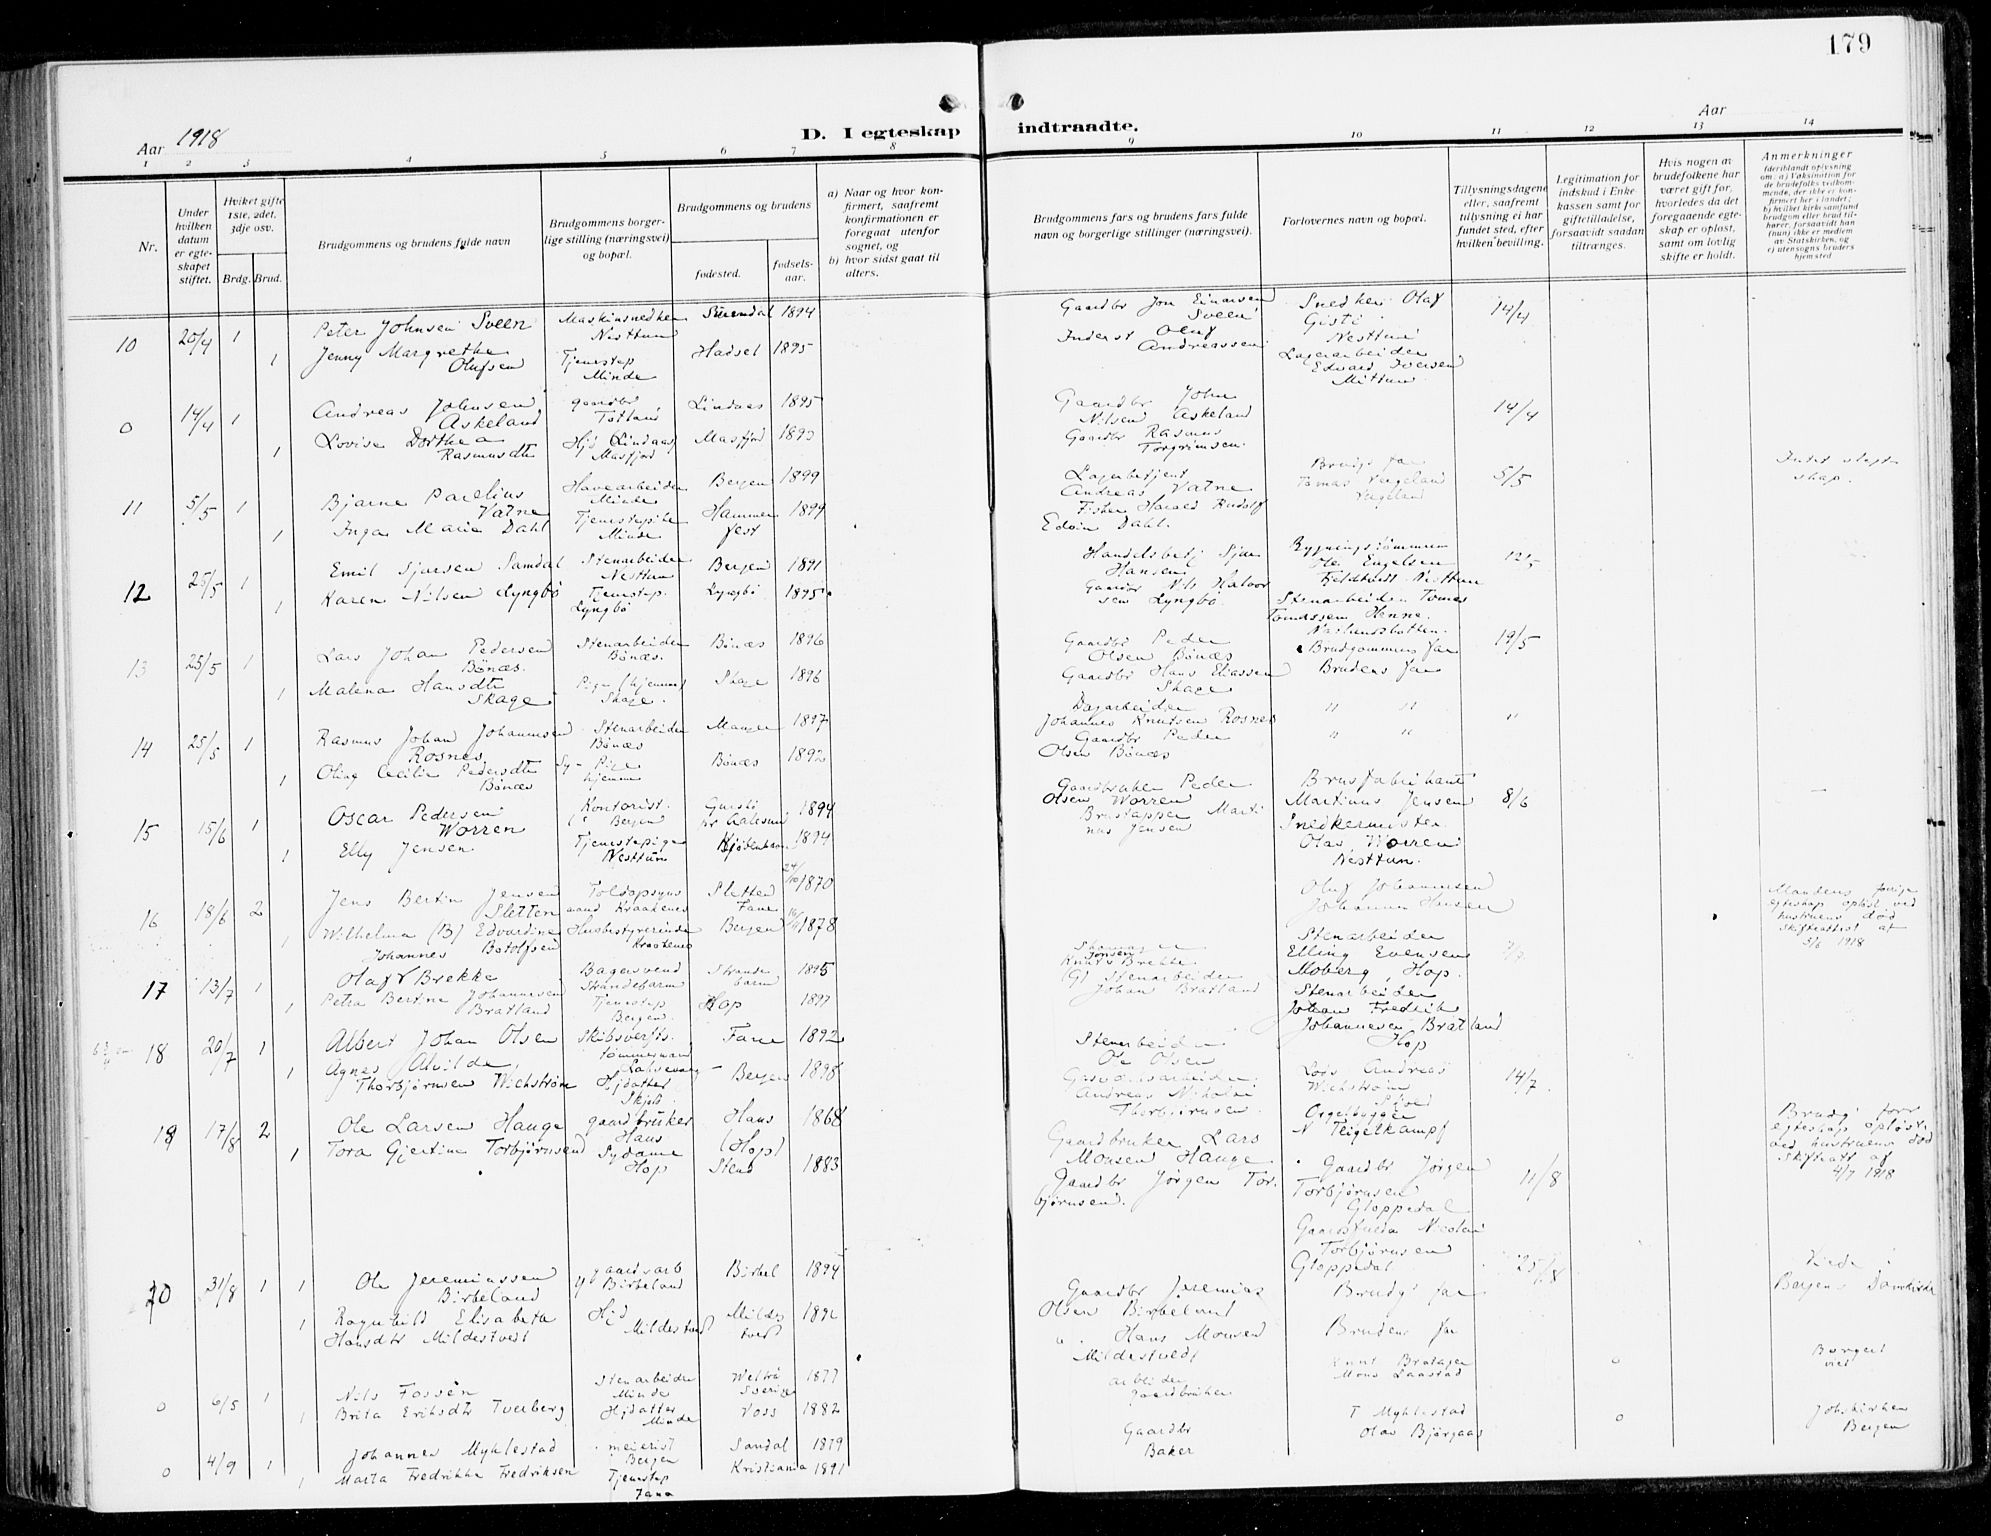 179
Aar 1918
D. I egteskap indtraadte.
Aar
1 2 3 4 5 6 7 8 9 10 11 12 13 14
Nr.
Under
hvilken
datum
er egte-
skapet
stiftet.
Hviket gifte
1ste, 2det,
3dje osv.
Brdg. Brud.
Brudgommens og brudens fulde navn
Brudgommens borger-
lige stilling (næringsvei)
og bopæl.
Brudgommens og brudens
fødested.
fødsels-
aar.
a) Naar og hvor kon-
firmert, saafremt
konfirmationen er
foregaat utenfor
sognet, og
b) hvor sidst gaat til
alters.
Brudgommens fars og brudens fars fulde
navn og borgerlige stillinger (næringsvei).
Forlovernes navn og bopæl.
Tillysningsdagene
eller, saafremt
tillysning ei har
fundet sted, efter
hvilken bevilling.
Legitimation for
indskud i Enke-
kassen samt for
giftetilladelse,
forsaavidt saadan
tiltrænges.
Hvis nogen av
brudefolkene har
været gift før,
hvorledes da det
foregaaende egte-
skap er opløst,
samt om lovlig
skifte er holdt.
Anmerkninger
(deriblandt oplysning
om: a) Vaksination for
de brudefolks vedkom-
mende, der ikke er kon-
firmert her i landet;
b) hvilket kirkesamfund
brudgom eller brud til-
hører, forsaavidt han
(hun) ikke er medlem
av Statskirken, og
c) utensogns bruders
hjemsted
10 20/4 1 Peter Johnsen Sveen Maskinsnedker Nesttun Surendal 1894 Gaardbr Jon Einarsen Sveen Snedker Olaf Nesttun 14/4
1 Jenny Margrethe Olufsen Tjenestep Minde Hadsel 1895 Inderst Oluf Andreassen Lagerarbeider Edvard Iversen
0 14/4 1 Andreas Johnsen Askeland gaardbr Totland Lindaas 1895 Gaardbr John Nilsen Askeland 14/4
1 Lovise Dorthea Rasmusdtr Lindaas Masfjord Masfjord Gaardbr Rasmus Torgrimsen
11 5/5 1 Bjarne Parelius Vatne Havearbeider Minde Bergen 1899 Lagerbetjent Andreas Vatne Brudgs far Tomas 5/5
1 Inga Marie Dahl Tjenestepike Minde Hammerfest 1899 Fisker Harald Rudolf Edvin Dahl.
12 25/5 1 Emil Sjursen Samdal Stenarbeider Nesttun Bergen 1891 Hansen Ole Engelsen Nesttun
1 Karen Nilsen Lyngbø Tjenestep. Lyngbø Lyngbø 1895 Gaardbr Nils Halvorsen Lyngbø Stenarbeider Tomas Tomassem Henne.
13 25/5 1 Lars Johan Pedersen Bønæs. Stenarbeider Bønæs. Bønæs 1896 Gaardbr Peder Olsen Bønæs Brudgommens far 19/5
1 Malena Hansdtr Skage Pige (hjemme) Skage. Skage 1896 Gaardbr Hans Eliassen Skage Brudens far
14 25/5 1 Rasmus Johan Johannesen Rosnes Stenarbeider Bønæs Manger 1897 Dagarbeider Johannes Knutsen Rosnes " " "
1 Olina Cecilie Pedersdtr Bønæs Sy-Pige hjemme Bønæs 1892 Gaardbr Peder Olsen Bønæs " "
15 15/6 1 Oscar Pedersen Worren Kontorist. Bergen Aalesund 1894 Gaardbruker Peder Olsen Worren Brusfabrikant Martinus Jensen 8/6
1 Elly Jensen. Tjenestepige Nesttun Kjøbenhavn 1894 Brustapper Martinus Jensen Snedkermester Olav Worren Nesttun.
16 18/6 2 Jens Bertin Jensen Sletten Toldopsynsmand Kraakenes Sletten Fane 24/10 1870 Oluf Johannesen Mandens forrige egteskap opløst ved hustruens død Skifteattest af 5/6 1918
1 Wilhelmina (B) Edvardine Johannes Botolfsen Husbestyrerinde Kraakenes Bergen 1878
17 13/7 1 Olaf Brekke Bagersvend Strandebarm Strandebarm 1895 Knuts Brekke Stenarbeider Elling Evensen Moberg, Hop.
1 Petra Bertine Johannesen Bratland Tjenestep Bergen. Hop 1897 Stenarbeider Johan Bratland Stenarbeider Johan Fredrik Johannesen Bratland Hop
18 20/7 1 Albert Johan Olsen Skibsverfts. tømmermand Fane 1892 Stenarbeider Ole Olsen
1 Agnes Alvilde Thorbjørnsen Wichstrøm Hjdatter Skjold Bergen 1898 Andreas Nikolai Thorbjørnsen Andreas Wichstrøm 14/7
19 17/8 2 Ole Larsen Hauge gaardbruker Haus Haus 1868 Gaardbruker Lars Monsen Hauge Orgelbygger N Teigelkampf Brudg forr egteskap opløst ved hustruens død Skifteatt af 4/7 1918
1 Tora Gjertine Torbjørnsend Sydame Hop (Hop) Stend 1883 Gaardbr Jørgen Torbjørnsen. Gaardbr Jørgen Torbjørnsen Gloppedal 11/8
Nicolai Torbjørnsen Gloppedal
20 31/8 1 1 Ole Jeremiassen Birkeland gaardsarb Birkeland Birkel 1894 Gaardbr Jeremias Olsen Birkeland Brudgs far 25/8 Viede i Bergens Domkirke
1 Ragnhild Elisabeta Hansdtr Mildestvedt Mildestvedt Mildestvedt Hans Monsen Mildestvedt Brudens far
0 6/5 1 Nils Fossén Stenarbeider Minde Sverige 1877 arbeider Knut Bratager Mons Laastad 0 Borgerl viet
1 Brita Eriksdtr Tverberg Hjdatter Minde Voss 1882 gaardbruker
0 4/9 1 Johannes Myklestad meierist Bergen Sandal 1879 Gaardbr T Myklestad Olav Bjørgaas 0 Johskirken Bergen
1 Marta Fredrikke Fredriksen Tjenestep Fana Kristiania 1891 Baker